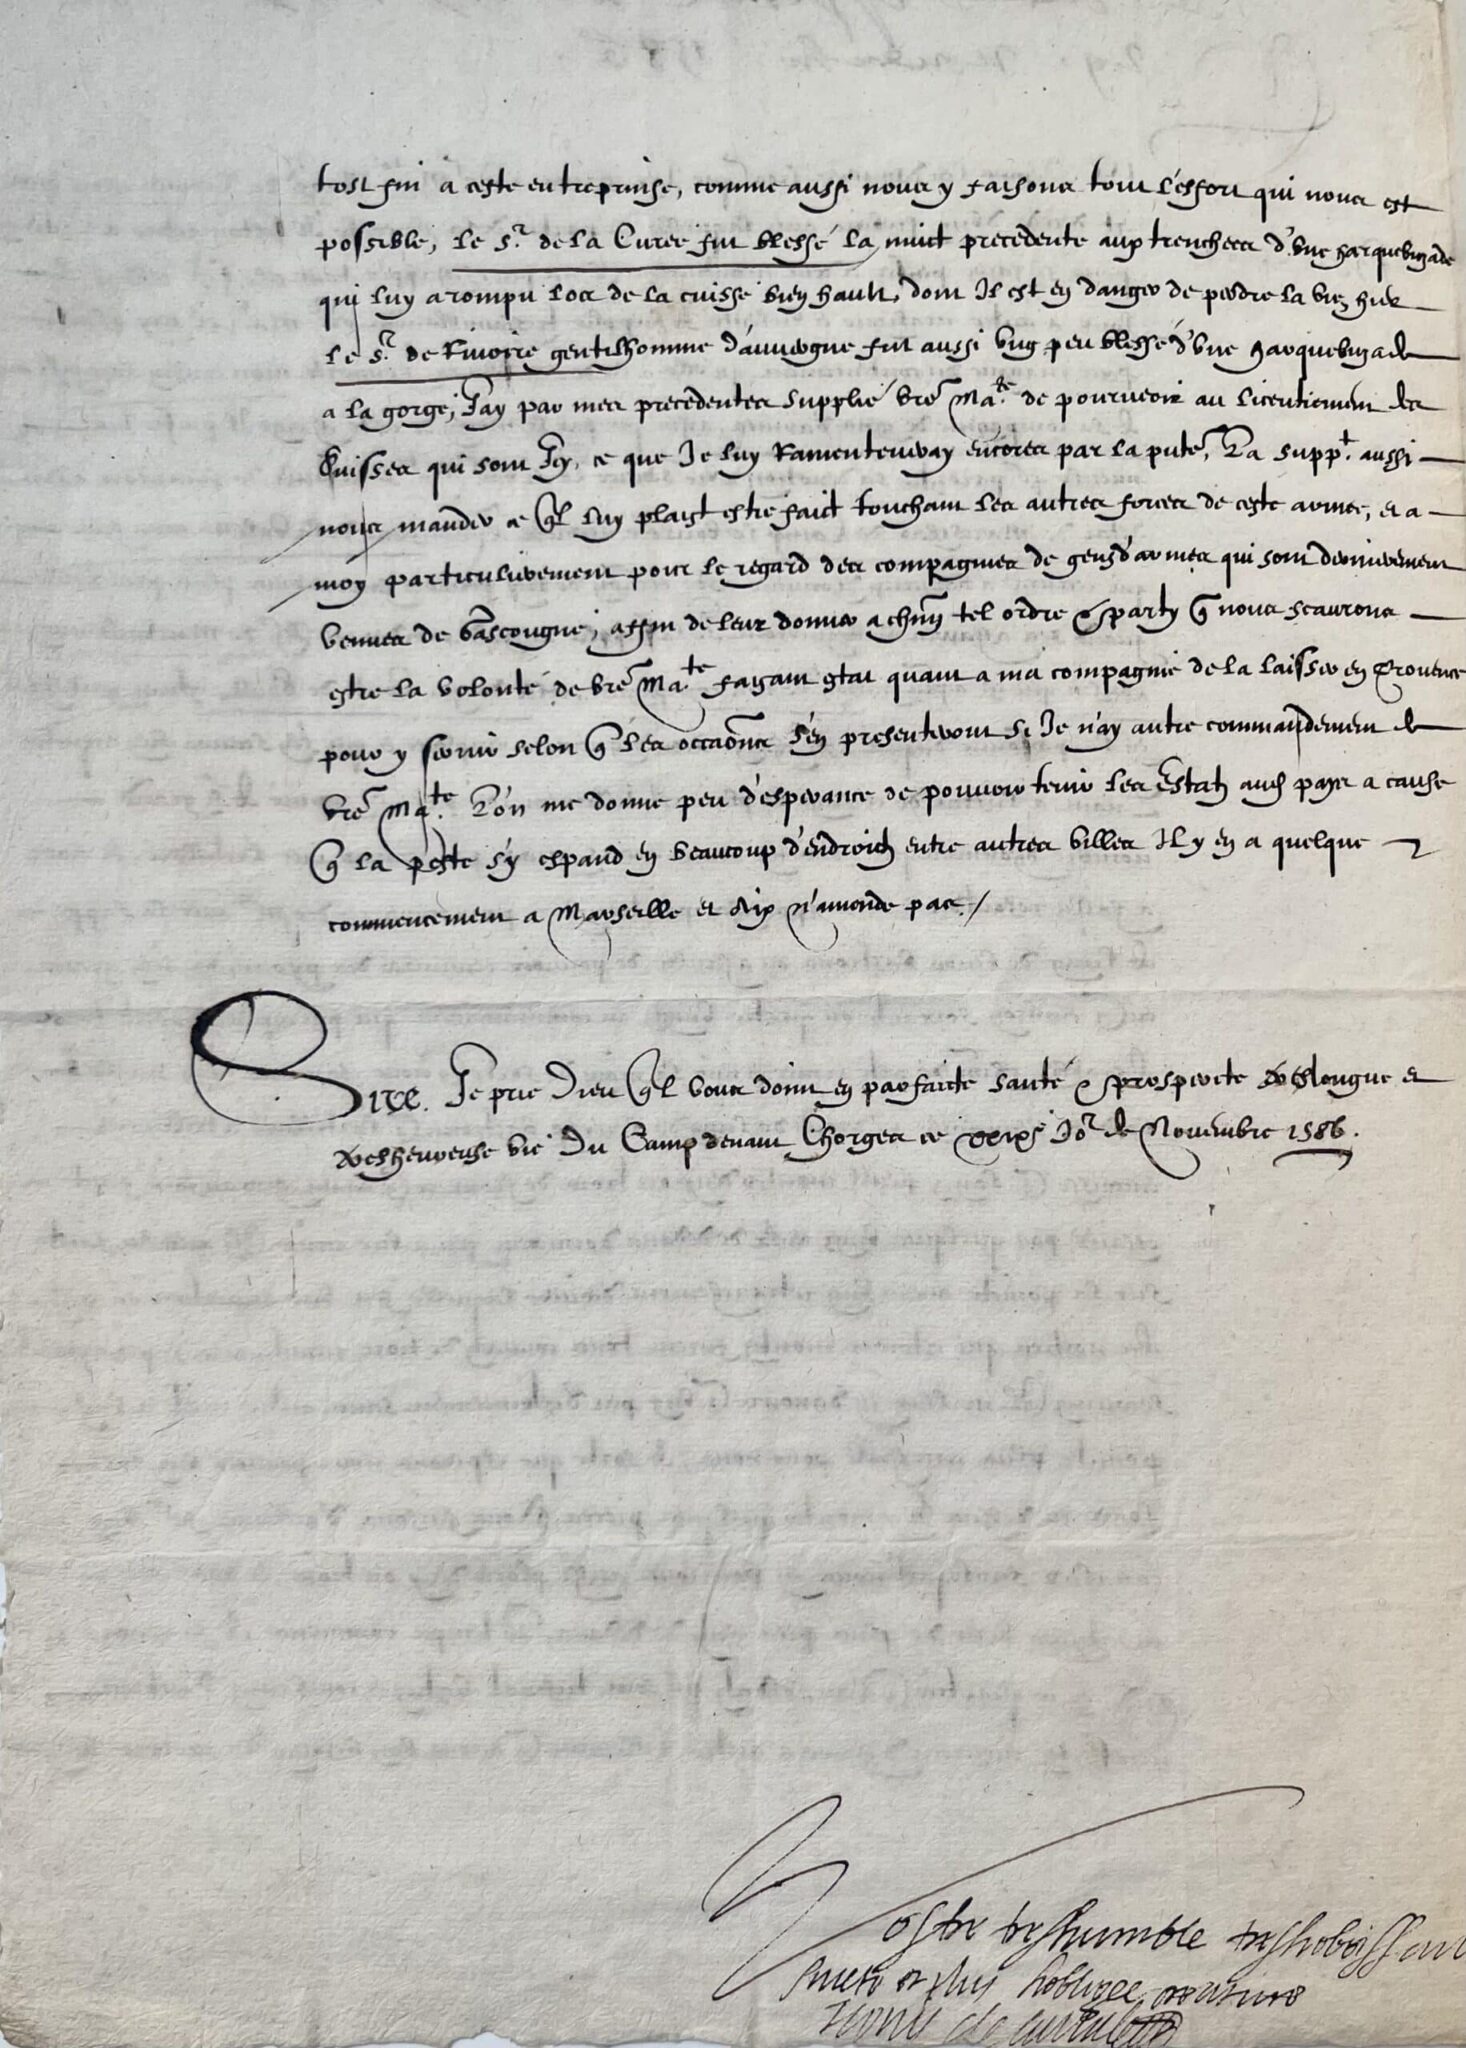 tost fin a ceste entreprinse, comme aussi nous y faisons tout l'effort qui nous est
possible, le Sr. de la Curee fut blessé la nuict precedente aux trenchees d'une harquebuzade
qui luy a rompu l'os de la cuisse bien hault, dont Il est en danger de perdre la vie, hier
le Sr. de Rivoire gentilhomme d'auvergne fut aussi ung peu blessé d'une harquebuzade
a la gorge, J'ay par mes precedentes supplié vre Ma.te de pourveoir au licentiement des
Suisses qui sont Icy, ce que Je luy Ramenteuvray encores par la pnte, La supp.t aussi
nous mander ce ql luy plaist estre faict touchant les autres forces de ceste armee, et a
moy particulierement pour le regard des compagnies de gensd'armes qui sont dernierement
venues de Gascougne, affin de leur donner a chun tel ordre & party q nous scaurons
estre la volonté de vre Ma.te faisant estat quant a ma compagnie de la laisser en Provence
pour y servir selon q les occaons s'en presenteront si Je n'ay autre commandement de
vre Ma.te L'on me donne peu d'esperance de pouvoir tenir les Estatz aud pays a cause
q la peste s'y espand en beaucoup d'endroictz entre autres villes Il y en a quelque
commencement a Marseille et Aix n'amende pas./
Sire. Je prie Dieu ql vous doint en parfaicte santé & prosperité treslongue et
tresheureuse vie Du Camp devant Chorges ce xxixe Jor de Novembre 1586.
Vostre treshumble treshobeissant
suiect et plus hobligee creature